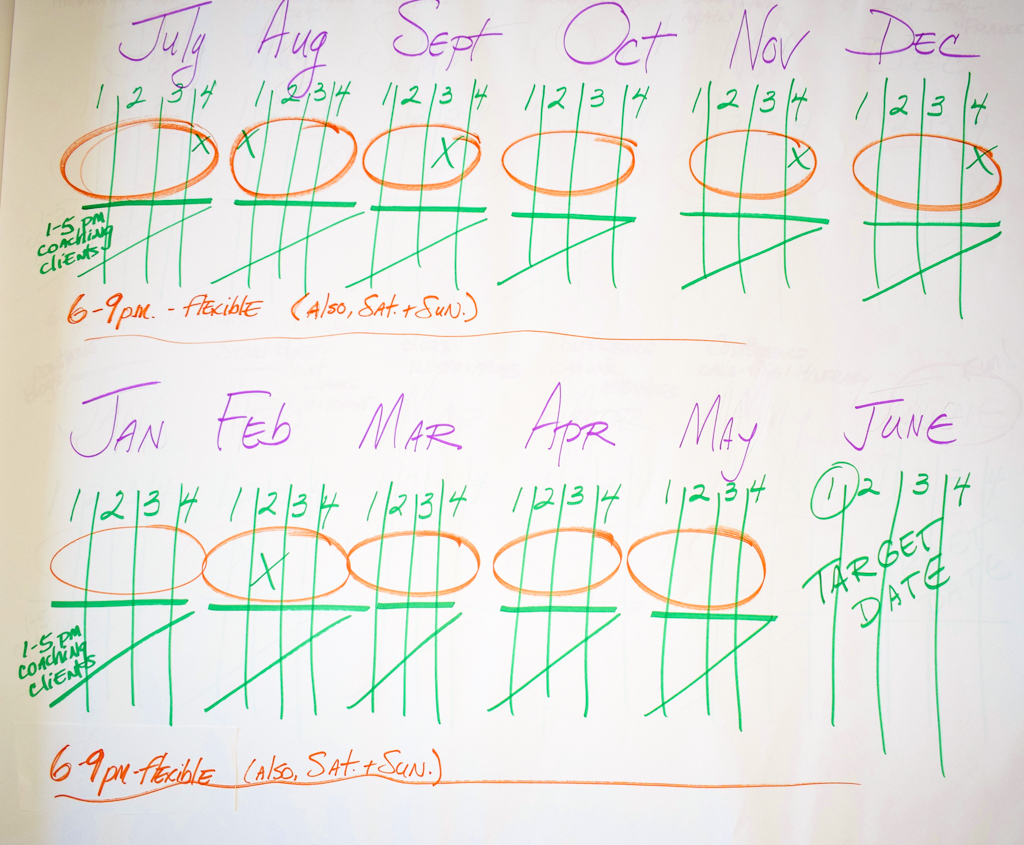 July Aug Sept Oct Nov Dec
1 2 3 4 1 2 3 4 1 2 3 4 1 2 3 4 1 2 3 4 1 2 3 4
X X X X X
1-5 pm
coaching
clients
6-9pm. - flexible (Also, Sat. + Sun.)
Jan Feb Mar Apr May June
1 2 3 4 1 2 3 4 1 2 3 4 1 2 3 4 1 2 3 4 1 2 3 4
X
TARGET
DATE
1-5 pm
coaching
clients
6-9pm-flexible (Also, Sat. + Sun.)